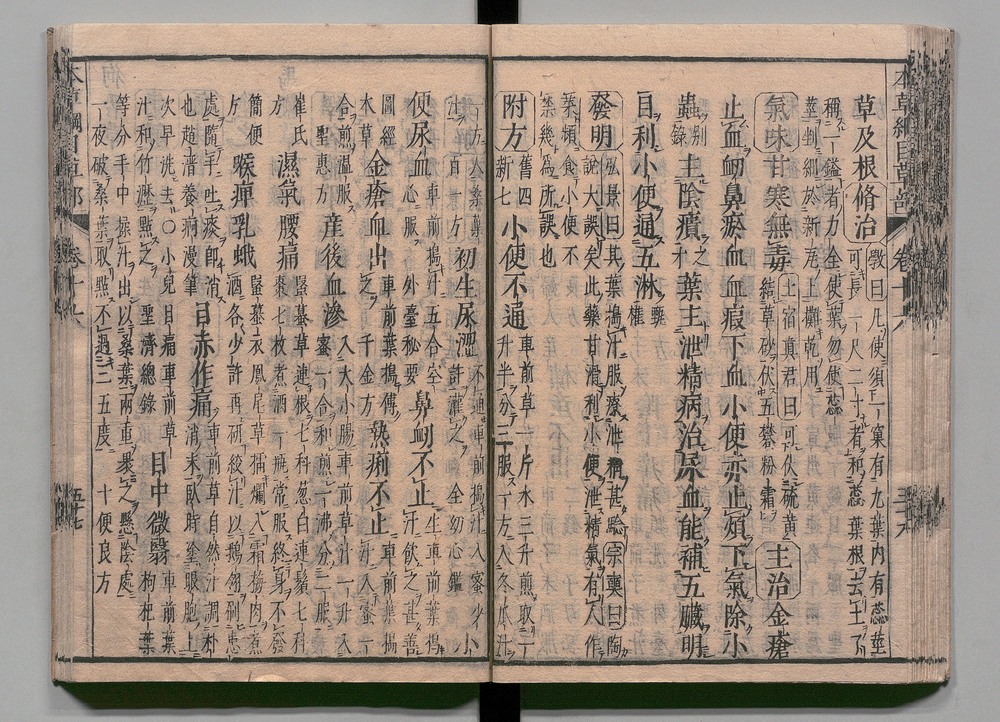 本草綱目草部 卷十六
草及根修治 斅曰凡使須一窠有九葉內有蕊莖
可長一尺二寸者和蕊葉根去土了
稱一鎰者力全使葉勿使蕊
莖剉細於新瓦上攤乾用
氣味甘寒無毒 土宿真君曰可伏硫黃
結草砂伏五礬粉霜 主治金瘡
止血衄鼻瘀血血瘕下血小便赤止煩下氣除小
蟲別錄主陰㿉之才葉主泄精病治尿血能補五臟明
目利小便通五淋甄權
發明 弘景曰其葉搗汁服療泄精甚驗宗奭曰陶
說大誤矣此藥甘滑利小便泄精氣有人作
菜頻食小便不
禁幾為所誤也
附方 舊四
新七 小便不通 車前草一斤水三升煎取一
升半分三服一方入冬瓜汁
一方入桑葉
汁百一方 初生尿澀 不通車前搗汁入蜜少
許灌之全幼心鑑 小
便尿血 車前搗汁五合空
心服外臺秘要 鼻衄不止 生車前葉搗
汁飲之甚善
圖經
本草 金瘡血出 車前葉搗傅
之千金方 熱痢不止 車前葉搗
汁入蜜一
合煎溫服
聖惠方 產後血滲 入大小腸車前草汁一升入
蜜一合和煎一沸分二服
崔氏
方 濕氣腰痛 蝦蟇草連根七科蔥白連鬚七科
棗七枚煮酒一瓶常服終身不發
簡便
方 喉痺乳蛾 蝦蟇衣鳳尾草擂爛入霜梅肉煮
酒各少許再研絞汁以鵝翎刷患
處隨手吐痰即消
也趙溍養痾漫筆 目赤作痛 車前草自然汁調朴
消末臥時塗眼胞上
次早洗去〇小兒目痛車前草
汁和竹瀝點之聖濟總錄 目中微翳 車前葉
枸杞葉
等分手中揉汁出以桑葉兩重裹之懸陰處
一夜破桑葉取點不過三五度十便良方
本草綱目草部 卷十六 五十七